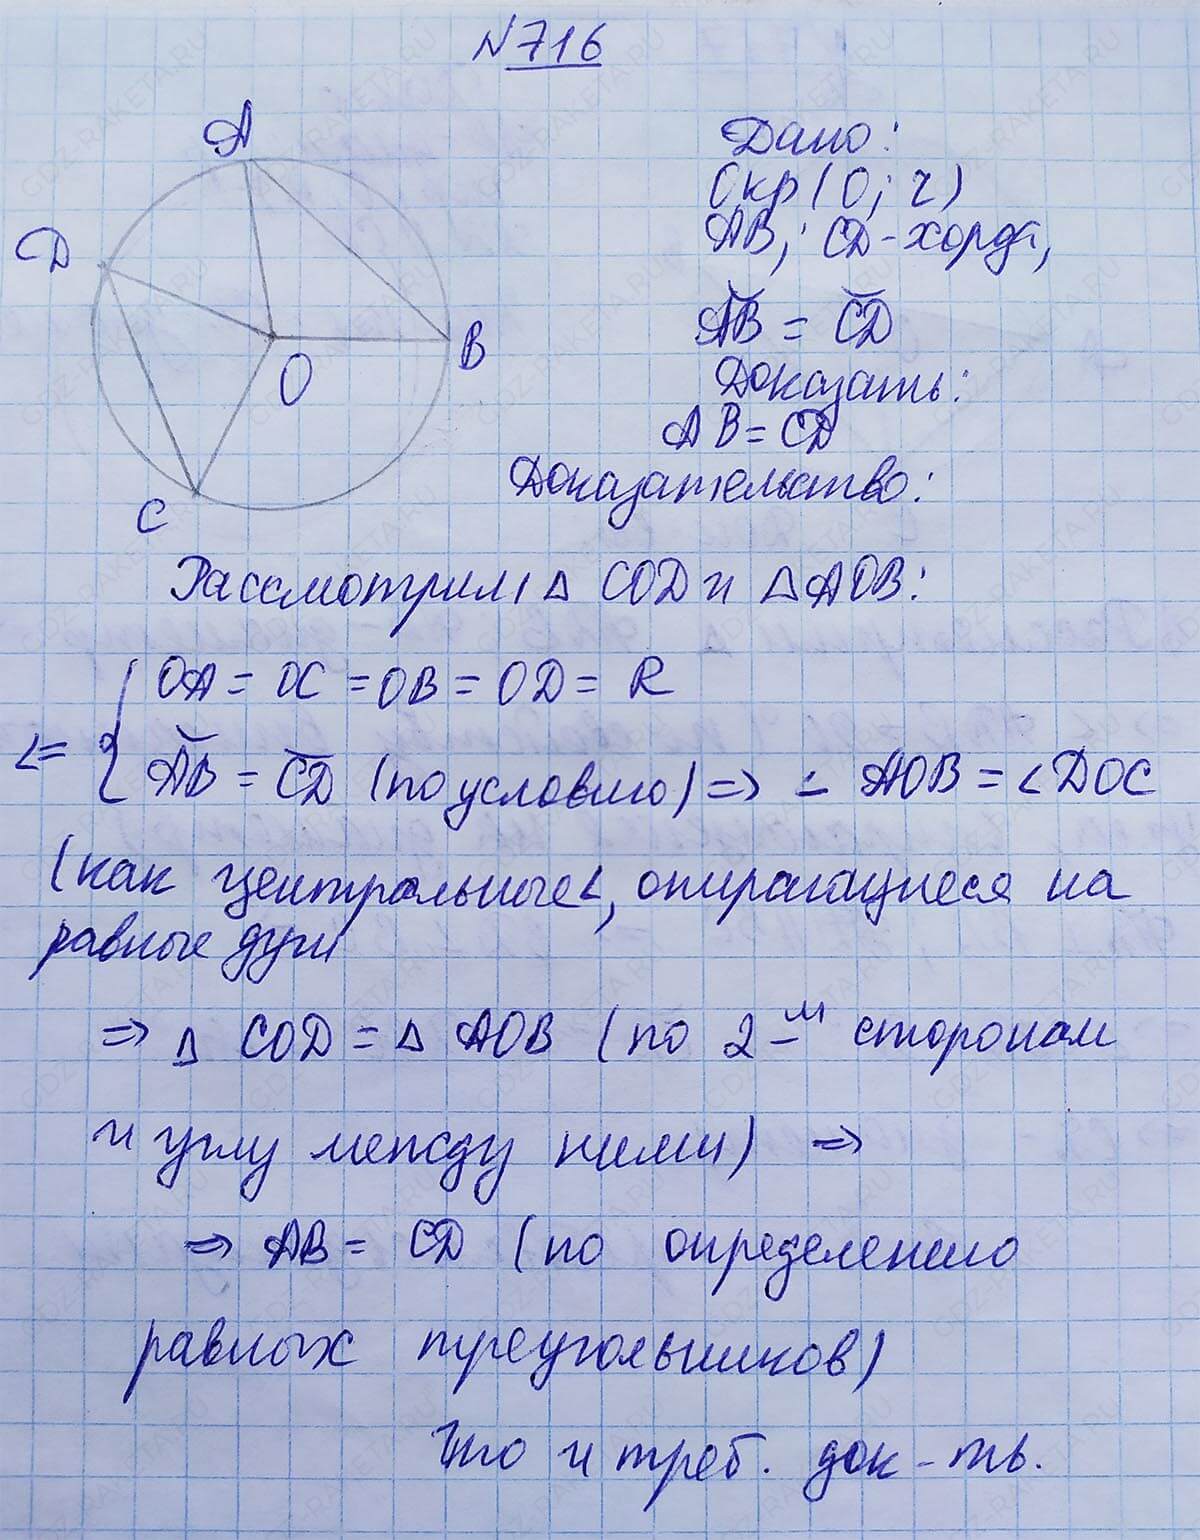 №716
A
D
B
O
C
Дано:
Окр(O; r)
AB, CD-хорда,
◡AB = ◡CD
Доказать:
AB = CD
Доказательство:
Рассмотрим △ COD и △ AOB:
OA = OC = OB = OD = R
<= { ◡AB = ◡CD (по условию) => ∠ AOB = ∠DOC
(как центральные ∠, опирающиеся на
равные дуги
=> △ COD = △ AOB (по 2-м сторонам
и углу между ними) =>
=> AB = CD (по определению
равных треугольников)
Что и треб. док-ть.